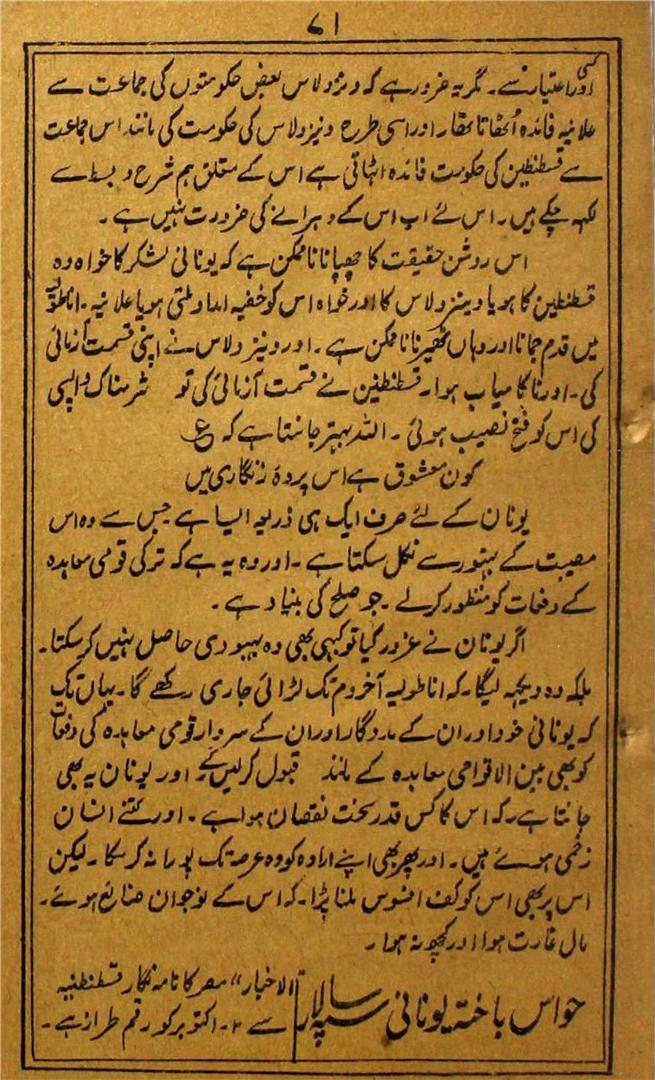 ۷۱
اور کسی اعتبار سے ۔ مگر یہ ضرور ہے کہ ونیزولاس بعض حکومتوں کی جماعت سے
علانیہ فائدہ اُٹھاتا تھا۔ اور اسی طرح ونیزولاس کی حکومت کی مانند اس جماعت
سے قسطنطین کی حکومت فائدہ اٹہاتی ہے اس کے متعلق ہم شرح و بسط سے
لکہہ چکے ہیں۔ اس لئے اب اس کے دہرانے کی ضرورت نہیں ہے ۔
اس روشن حقیقت کا چھپانا ناممکن ہے کہ یونانی لشکر کا خواہ وہ
قسطنطین کا ہو یا وینزولاس کا اور خواہ اس کو خفیہ امداد ملتی ہو یا علانیہ ۔ اناطولیہ
میں قدم جمانا اور وہاں ٹھیرنا ناممکن ہے ۔ اور ونیزولاس نے اپنی قسمت آزمائی
کی ۔ اور ناکامیاب ہوا۔ قسطنطین نے قسمت آزمائی کی تو شرمناک واپسی
کی اس کو فتح نصیب ہوئی ۔ اللہ بہتر جانتا ہے کہ ع
کون معشوق ہے اس پردۂ زنگاری میں
یونان کے لئے صرف ایک ہی ذریعہ ایسا ہے جس سے وہ اس
مصیبت کے بہنور سے نکل سکتا ہے ۔ اور وہ یہ ہے کہ ترکی قومی معاہدہ
کے دفعات کو منظور کرلے ۔ جو صلح کی بنیاد ہے ۔
اگر یونان نے غرور کیا تو کبہی بھی وہ بہبودی حاصل نہیں کرسکتا۔
بلکہ وہ دیکہہ لیگا۔ کہ اناطولیہ آخر دم تک لڑائی جاری رکھے گا۔ یہاں تک
کہ یونانی خود اور ان کے مددگار اور ان کے سردار قومی معاہدہ کی دفعات
کو بھی بین الاقوامی معاہدہ کے مانند قبول کرلیں گے اور یونان یہ بھی
جانتا ہے۔ کہ اس کا کس قدر سخت نقصان ہوا ہے ۔ اور کتنے انسان
زخمی ہوئے ہیں۔ اور پھر بھی اپنے ارادہ کو وہ عرصہ تک پورا نہ کرسکا ۔ لیکن
اس پر بھی اس کو کف افسوس ملنا پڑا۔ کہ اس کے نوجوان ضائع ہوئے ۔
مال غارت ہوا اور کچھ نہ ہوا ۔
حواس باختہ یونانی سپہ سالار
الاخبار" مصر کا نامہ نگار قسطنطنیہ
سے ۲۔ اکتوبر کو رقم طراز ہے ۔